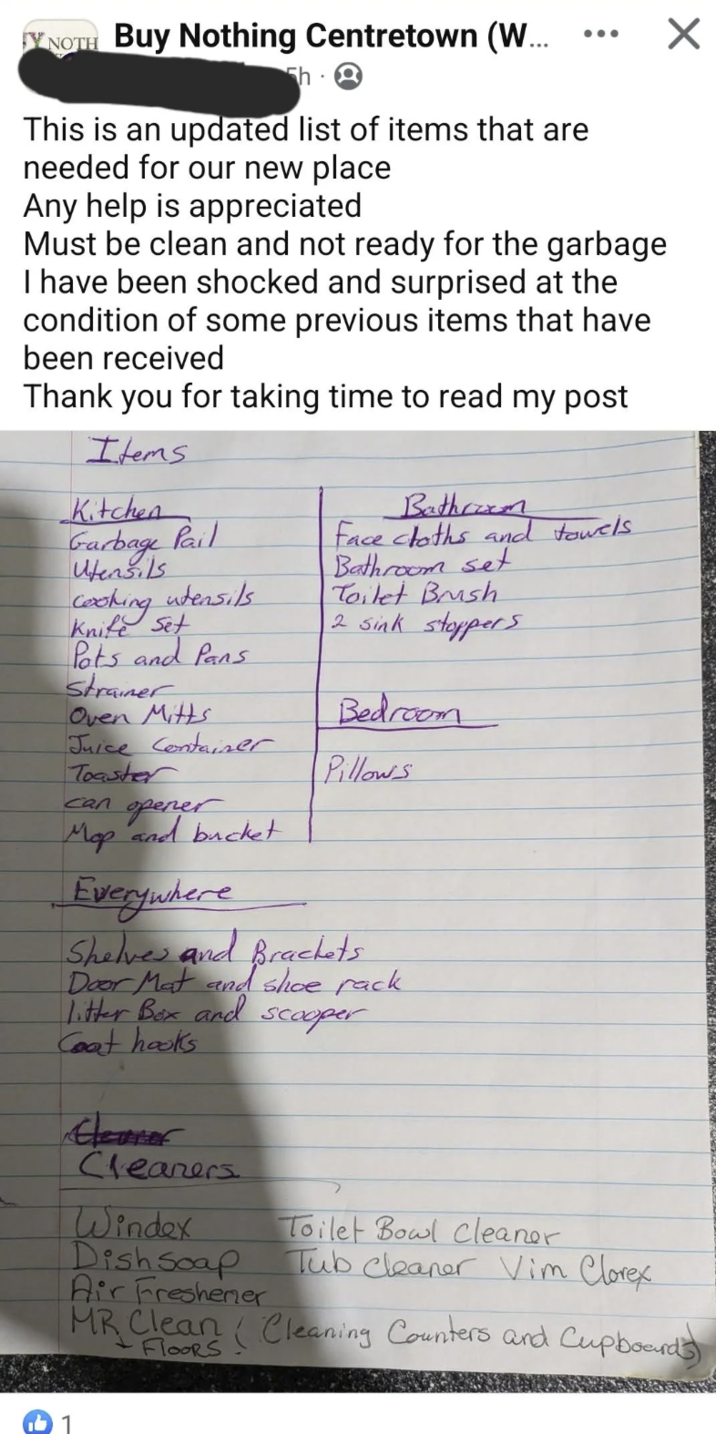 Y NOTH
Buy Nothing Centretown (W...
5h
This is an updated list of items that are
needed for our new place
Any help is appreciated
Must be clean and not ready for the garbage
I have been shocked and surprised at the
condition of some previous items that have
been received
Thank you for taking time to read my post
Items
Kitchen
Garbage Pail
Utensils
Cooking utensils
Knife Set
Pots and Pans
Strainer
Oven Mitts
Juice Container
Toaster
can opener
Mop and bucket
Bathroom
Face cloths and towels
Bathroom set
Toilet Brush
2 sink stoppers
Bedroom
Pillows
Everywhere
Shelves and Brackets
Door Mat and shoe rack
litter Box and scooper
Coat hooks
Cleaners
Windex Toilet Bowl Cleaner
Dish soap Tub cleaner Vim Clorex
Air Freshener
MR Clean ( Cleaning Counters and Cupboards)
+ FLOORS.
1